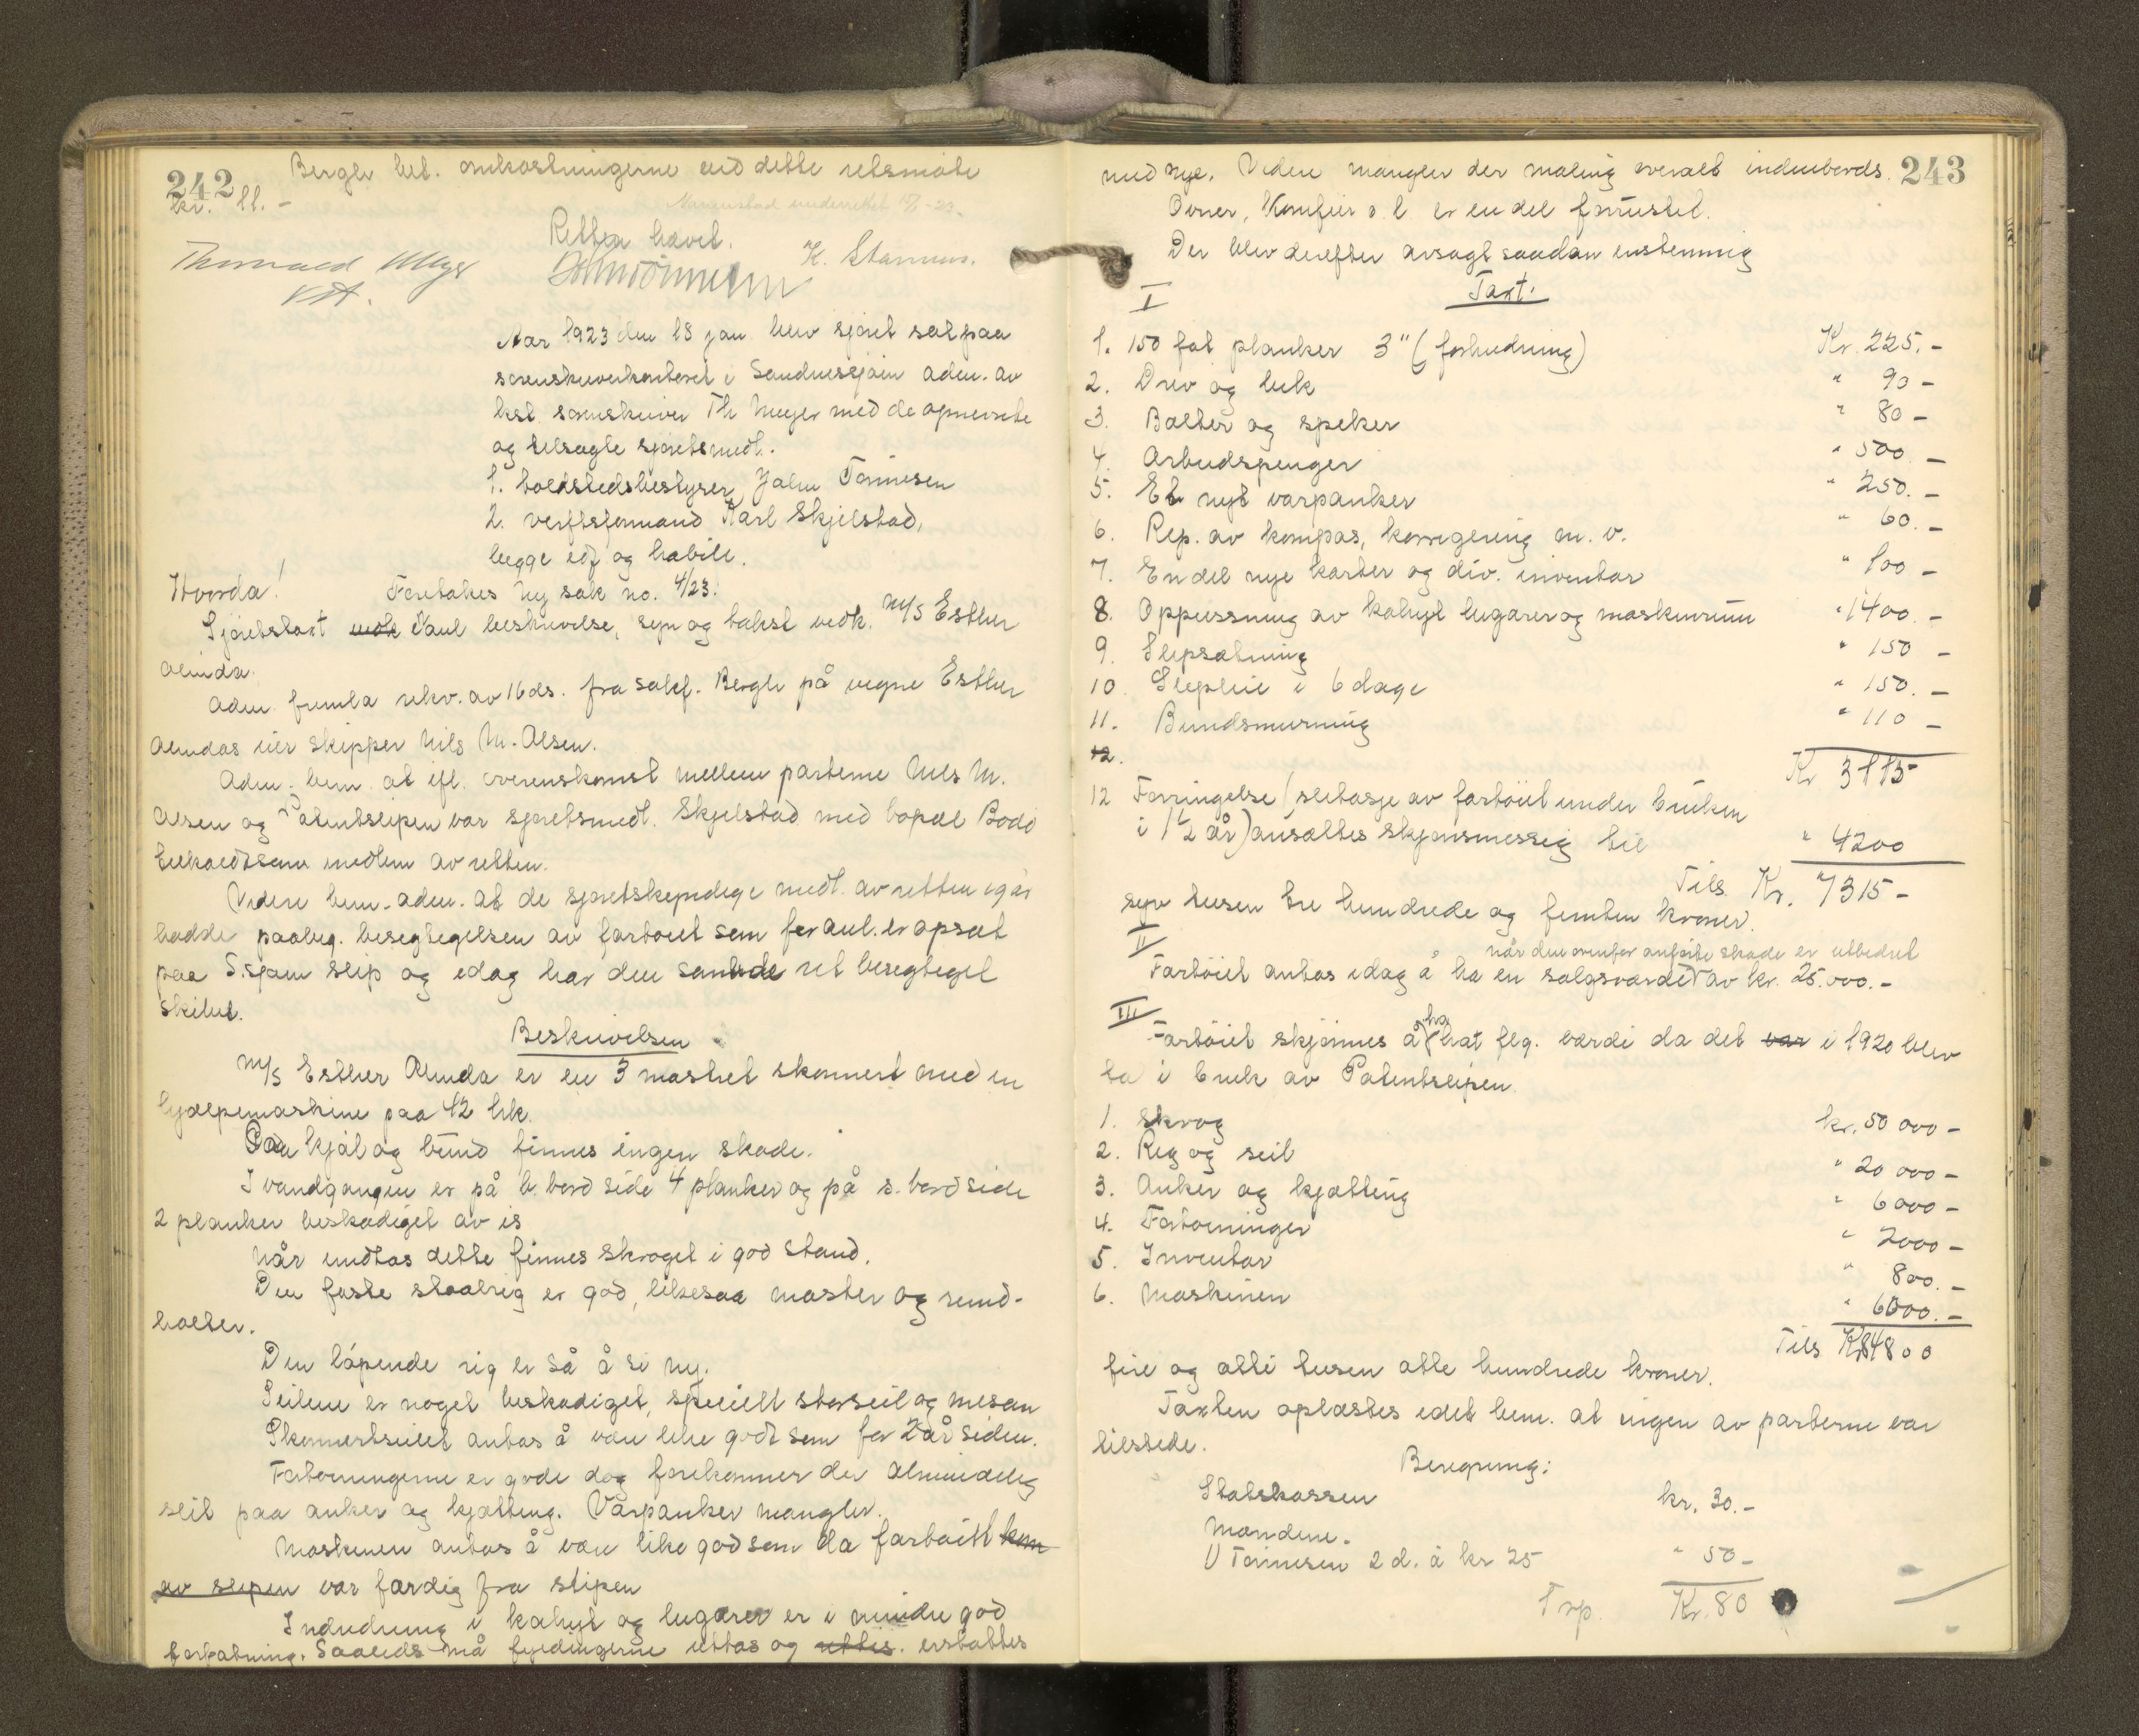 242 Bergh bet. omkostningerne ved dette retsmøte
kr. 11.-
Retten hævet.
Thorvald Meyer K. Stamnes.
kst.
Aar 1923 den 18 jan blev sjøret sat paa
sorenskriverkontoret i Sandnessjøen adm. av
kst. sorenskriver Th Meyer med de opnevnte
og tilsagte sjøretsmedl.
1. toldstedsbestyrer John Tønnesen
2. verftsformand Karl Skjelstad,
begge edf og habile.
Hvorda! Foretakes ny sak no. 4/23:
Sjøretstaxt samt beskrivelse, syn og takst vedk. M/S Esther
Alvida.
Adm. fremla rekv. av 16 ds. fra sakf. Bergh på vegne Esther
Alvidas eier skipper Nils M. Olsen.
Adm. bem. at ifl. overenskomst mellem parterne Nils M.
Olsen og Patentslipen var sjøretsmedl. Skjelstad med bopæl Bodø
tilkaldt som medlem av retten.
Videre bem. adm. at de sjøretskyndige medl. av retten igår
hadde paabeg. besegtigelsen av fartøiet som for anl. er opsat
paa S.sjøen slip og idag har den samlede ret besegtiget
skibet.
Beskrivelsen
M/S Esther Alvida er en 3 mastret skonnert med en
hjælpemaskine paa 42 hk.
Paa kjøl og bund finnes ingen skade.
I vandgangen er på b. bord side 4 planker og på s. bord side
2 planker beskadiget av is
Når undtas dette finnes skroget i god stand.
Den faste staalrig er god, likesaa master og rund-
holter.
Den løpende rig er så å si ny.
Seilene er noget beskadiget, specielt storseil og mesan
Skonnertseilet antas å være like godt som for 2 år siden.
Fortøiningerne er gode dog forekommer der almindelig
slit paa anker og kjætting. Varpanker mangler.
Maskinen antas å være like god som da fartøiet kom
av slipen var færdig fra slipen
Indredning i kahyt og lugarer er i mindre god
forfatning. Saaledes må fyldingerne uttas og erstattes
243
med nye. Videre mangler der maling overalt indenbords.
Ovner, Komfyr o l er en del forrustet.
Der blev derefter avsagt saadan enstemmig
Taxt:
I
1. 150 fot planker 3" (forhudning) Kr. 225.-
2. Drev og bek " 90 -
3. Bolter og spiker " 80 -
4. Arbeidspenger " 500 -
5. Et nyt varpanker " 250. -
6. Rep. av kompas, korrigering m. v. " 60. -
7. En del nye karter og div. inventar " 100 -
8. Oppussning av kahyt lugarer og maskinrum " 1400. -
9. Slipsætning " 150 -
10. Slipleie i 6 dage " 150. -
11. Bundsmurning " 110 -
12. Kr 3115-
12 Forringelse (slitasje av fartøiet under bruken
i 1 1/2 år) ansættes skjønsmessig til " 4200
Tils Kr. 7315 -
syv tusen tre hundrede og femten kroner.
II
når den ovenfor anførte skade er utbedret
Fartøiet antas idag å ha en salgsværdi av kr. 25.000.-
III
Fartøiet skjønnes å ha hat flg. værdi da det var i 1920 blev
ta i bruk av Patentslipen.
1. Skrog kr. 50 000 -
2. Rig og seil " 20 000 -
3. Anker og kjætting " 6 000 -
4. Fortøininger " 2000 -
5. Inventar " 800. -
6. Maskinen " 6000. -
Tils Kr 84800
fire og otti tusen otte hundrede kroner.
Taxten oplæstes idet bem. at ingen av parterne var
tilstede.
Beregning:
Statskassen kr. 30.-
Mændene.
1) Tønnesen 2 d. à kr 25 " 50 -
Trp. Kr. 80